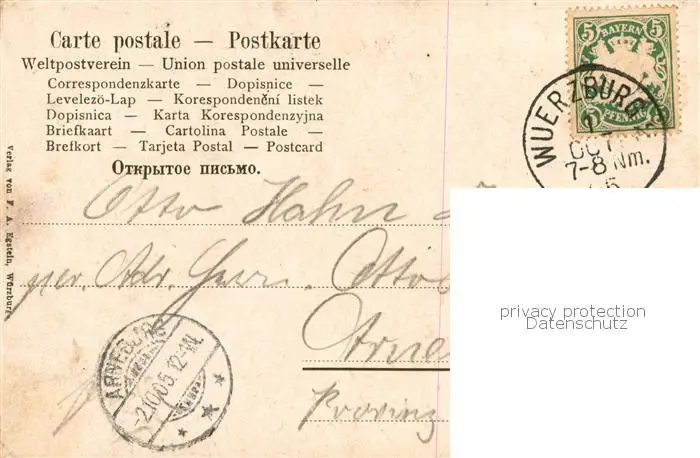 Carte postale — Postkarte
Weltpostverein — Union postale universelle
Correspondenzkarte — Dopisnice —
Levelezö-Lap — Korespondenční listek
Dopisnica — Karta Korespondenzyjna
Briefkaart — Cartolina Postale —
Brefkort — Tarjeta Postal — Postcard
Открытое письмо.
Verlag von F. A. Egstein, Würzburg
5 BAYERN 5
PFENNIG
WUERZBURG
1 OCT
7-8 Nm.
05
Otto Hahn
per Adr. Herrn Otto
Arne
Provinz
ARNEBURG
-2.10.05.12-1N.
privacy protection
Datenschutz